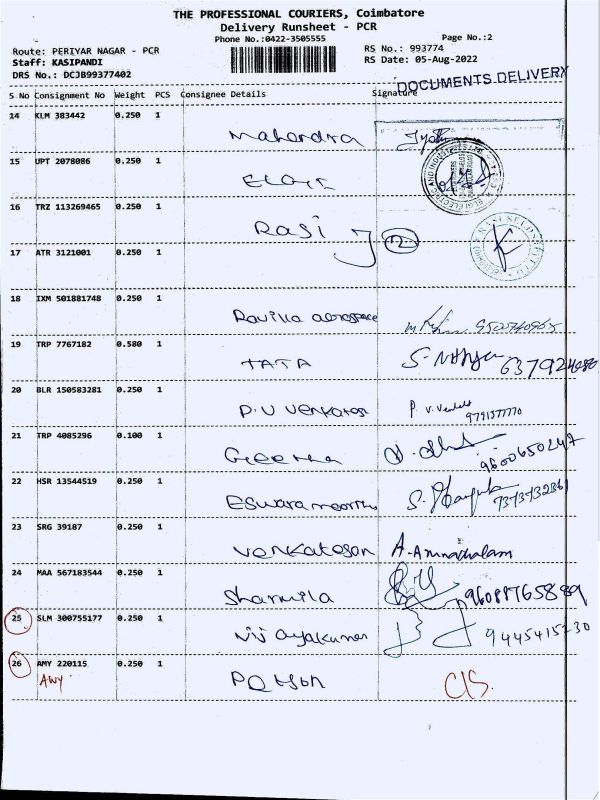 THE PROFESSIONAL COURIERS, Coimbatore
Delivery Runsheet - PCR
Phone No.:0422-3505555
Page No.:2
Route: PERIYAR NAGAR - PCR
RS No.: 993774
Staff: KASIPANDI
RS Date: 05-Aug-2022
DRS No.: DCJB99377402
DOCUMENTS DELIVERY
S No Consignment No Weight PCS Consignee Details Signature
14 KLM 383442 0.250 1
Mahendra Jyothi
15 UPT 2078086 0.250 1
16 TRZ 113269465 0.250 1
Rasi
17 ATR 3121001 0.250 1
12
18 IXM 501881748 0.250 1
Ravilla aerospace 9500740965
19 TRP 7767182 0.580 1
TATA S-Nithya 6379240
20 BLR 150583281 0.250 1
P.V Venkatesh P. V. Venkat
9791377770
21 TRP 4085296 0.100 1
Geetha 9600650247
22 HSR 13544519 0.250 1
Eswaramoorthy S.
23 SRG 39187 0.250 1
Venkatesan A-Arunachalam
24 MAA 567183544 0.250 1
Sharmila 9608876588
25 SLM 300755177 0.250 1
Vijayakumar 9445415230
26 AMY 220115 0.250 1
AWY